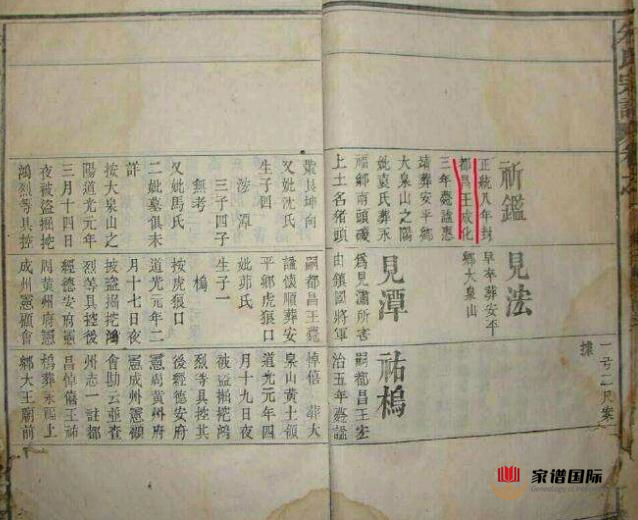 祈鑑
正統八年封
都昌王成化
三年薨謚惠
靖葬安平鄉
大泉山之陽
妣袁氏葬永
福鄉南頭
上土名猪頭
艮坤向
又妣沈氏
生子四
涉 潭
三子四子
無考
又妣馬氏
二妣墓俱未
詳
按大泉山之
陽道光元年
三月十四日
夜被盜掘挖
鴻烈等具控
見法
早卒葬安平
鄉大泉山
見潭
為見瀟所害
由鎮國將軍
嗣都昌王薨
諡懷順葬安
平鄉虎狼口
妣茆氏
生子一
槝
按虎狼口
道光元年二
月十七日夜
被盜掘挖鴻
烈等具控後
經德安府憲
周黃州府憲
成州憲顧會
祐槝
嗣都昌王宏
治五年薨諡
悼僖 葬大
泉山黃土領
道光元年四
月十九日夜
被盜掘挖鴻
烈等具控其
後經德安府
憲周黃州府
憲成州憲顧
會勘云並查
州志一註都
昌悼僖王祐
槝葬永福上
鄉大王廟前
氏宗譜
家谱国际